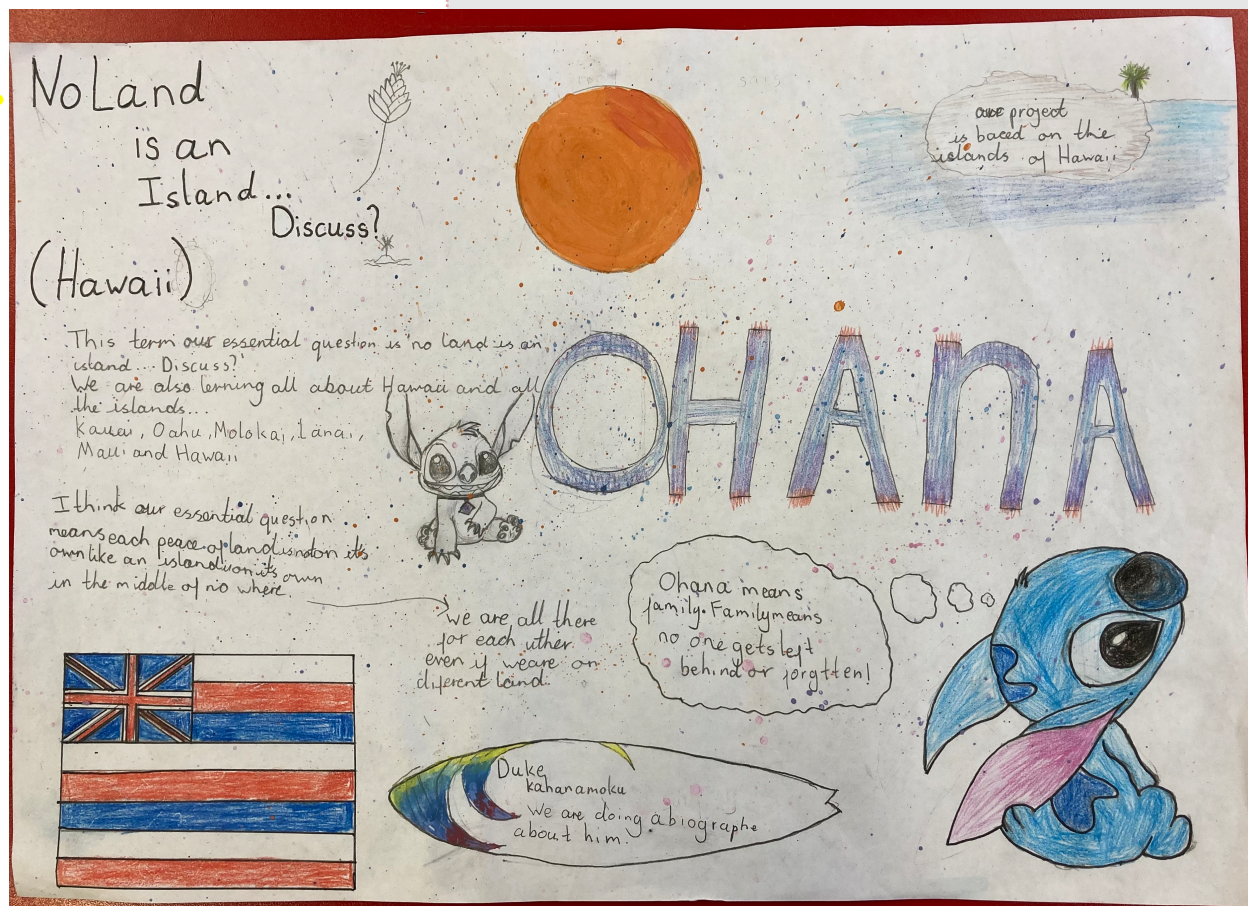 No Land
is an
Island...
Discuss?
(Hawaii)
our project
is baced on the
islands of Hawaii
This term our essential question is 'no land is an
island... Discuss?'
We are also lerning all about Hawaii and all
the islands...
Kauai, Oahu, Molokai, Lanai,
Maui and Hawaii
OHAnA
I think our essential question
means each peace of land is not on it's
own like an island on it's own
in the middle of no where.
we are all there
for each uther
even if we are on
diferent land.
Ohana means
family. Family means
no one gets left
behind or forgtten!
Duke
kahanamoku
We are doing a biographe
about him.